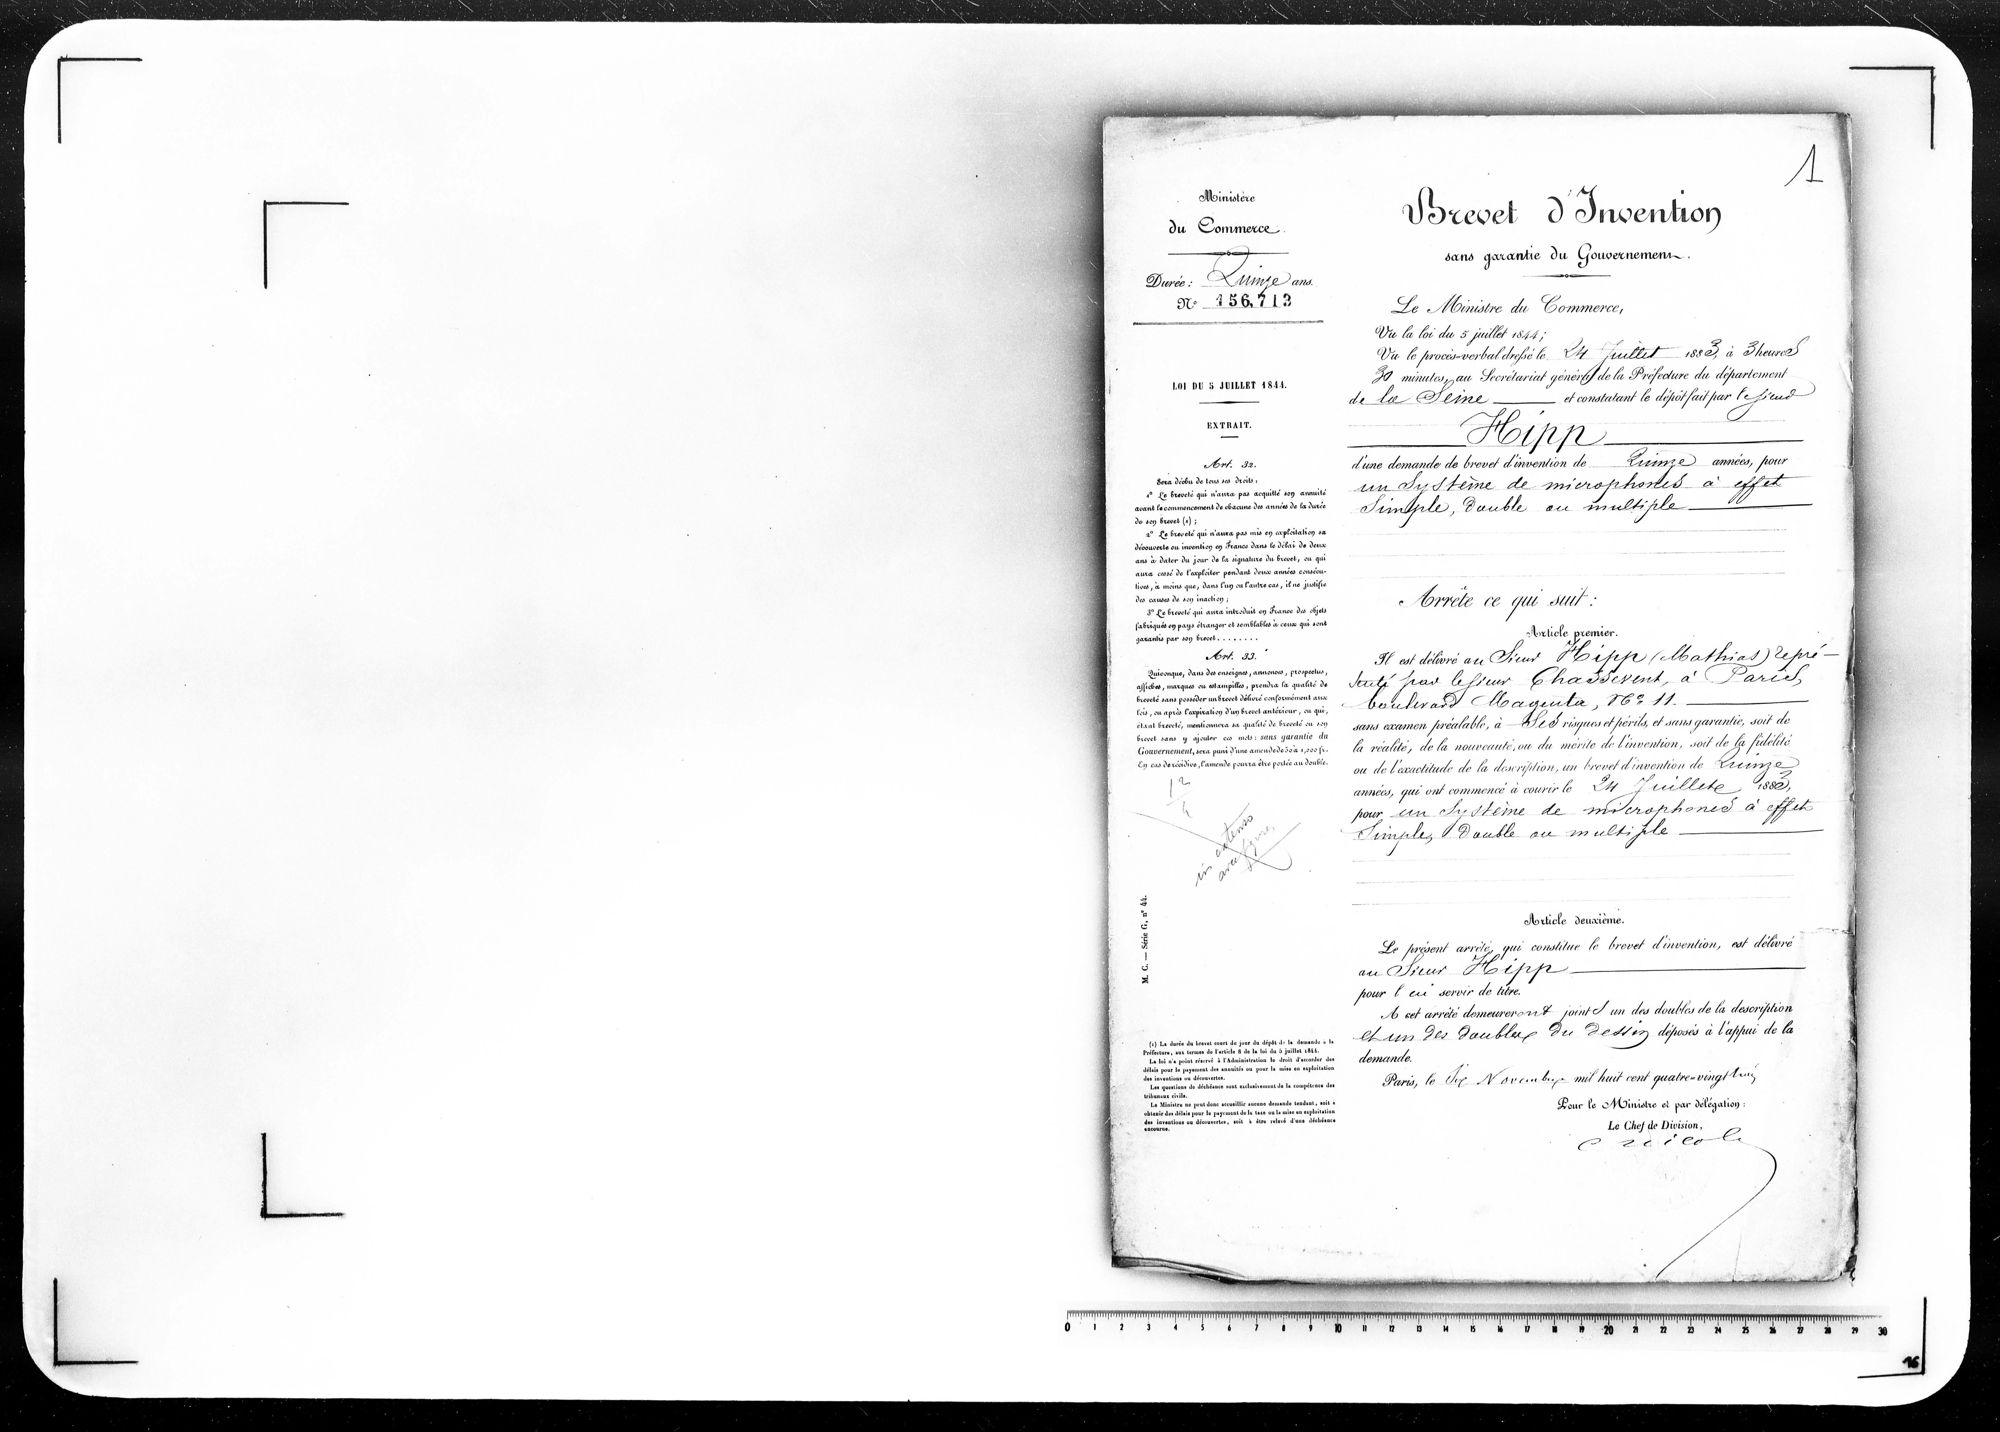 1
Ministère
du Commerce.
Durée : Quinze ans.
N° 156,713
LOI DU 5 JUILLET 1844.
EXTRAIT.
Art. 32.
Sera déchu de tous ses droits :
1° Le breveté qui n'aura pas acquitté son annuité
avant le commencement de chacune des années de la durée
de son brevet (1) ;
2° Le breveté qui n'aura pas mis en exploitation sa
découverte ou invention en France dans le délai de deux
ans à dater du jour de la signature du brevet, ou qui
aura cessé de l'exploiter pendant deux années consécu-
tives, à moins que, dans l'un ou l'autre cas, il ne justifie
des causes de son inaction ;
3° Le breveté qui aura introduit en France des objets
fabriqués en pays étranger et semblables à ceux qui sont
garantis par son brevet........
Art. 33.
Quiconque, dans des enseignes, annonces, prospectus,
affiches, marques ou estampilles, prendra la qualité de
breveté sans posséder un brevet délivré conformément aux
lois, ou après l'expiration d'un brevet antérieur, ou qui,
étant breveté, mentionnera sa qualité de breveté ou son
brevet sans y ajouter ces mots : sans garantie du
Gouvernement, sera puni d'une amende de 50 à 1,000 fr.
En cas de récidive, l'amende pourra être portée au double.
12
in extenso
avec figures
M. C. — Série G, n° 44.
(1) La durée du brevet court du jour du dépôt de la demande à la
Préfecture, aux termes de l'article 8 de la loi du 5 juillet 1844.
La loi n'a point réservé à l'Administration le droit d'accorder des
délais pour le payement des annuités ou pour la mise en exploitation
des inventions ou découvertes.
Les questions de déchéance sont exclusivement de la compétence des
tribunaux civils.
Le Ministre ne peut donc accueillir aucune demande tendant, soit à
obtenir des délais pour le payement de la taxe ou la mise en exploitation
des inventions ou découvertes, soit à être relevé d'une déchéance
encourue.
Brevet d'Invention
sans garantie du Gouvernement.
Le Ministre du Commerce,
Vu la loi du 5 juillet 1844 ;
Vu le procès-verbal dressé le 24 Juillet 1883, à 3 heures
30 minutes, au Secrétariat général de la Préfecture du département
de la Seine et constatant le dépôt fait par le Sieur
Hipp
d'une demande de brevet d'invention de Quinze années, pour
un Système de microphones à effet
Simple, Double ou multiple
Arrête ce qui suit :
Article premier.
Il est délivré au Sieur Hipp (Mathias) repré-
senté par le Sieur Chassevent, à Paris,
boulevard Magenta, N° 11.
sans examen préalable, à Ses risques et périls, et sans garantie, soit de
la réalité, de la nouveauté, ou du mérite de l'invention, soit de la fidélité
ou de l'exactitude de la description, un brevet d'invention de Quinze
années, qui ont commencé à courir le 24 Juillet 1883,
pour un Système de microphones à effet
Simple, Double ou multiple
Article deuxième.
Le présent arrêté, qui constitue le brevet d'invention, est délivré
au Sieur Hipp
pour lui servir de titre.
A cet arrêté demeureront joints un des doubles de la description
et un des doubles du dessin déposés à l'appui de la
demande.
Paris, le Six Novembre mil huit cent quatre-vingt trois
Pour le Ministre et par délégation :
Le Chef de Division,
0 1 2 3 4 5 6 7 8 9 10 11 12 13 14 15 16 17 18 19 20 21 22 23 24 25 26 27 28 29 30
16